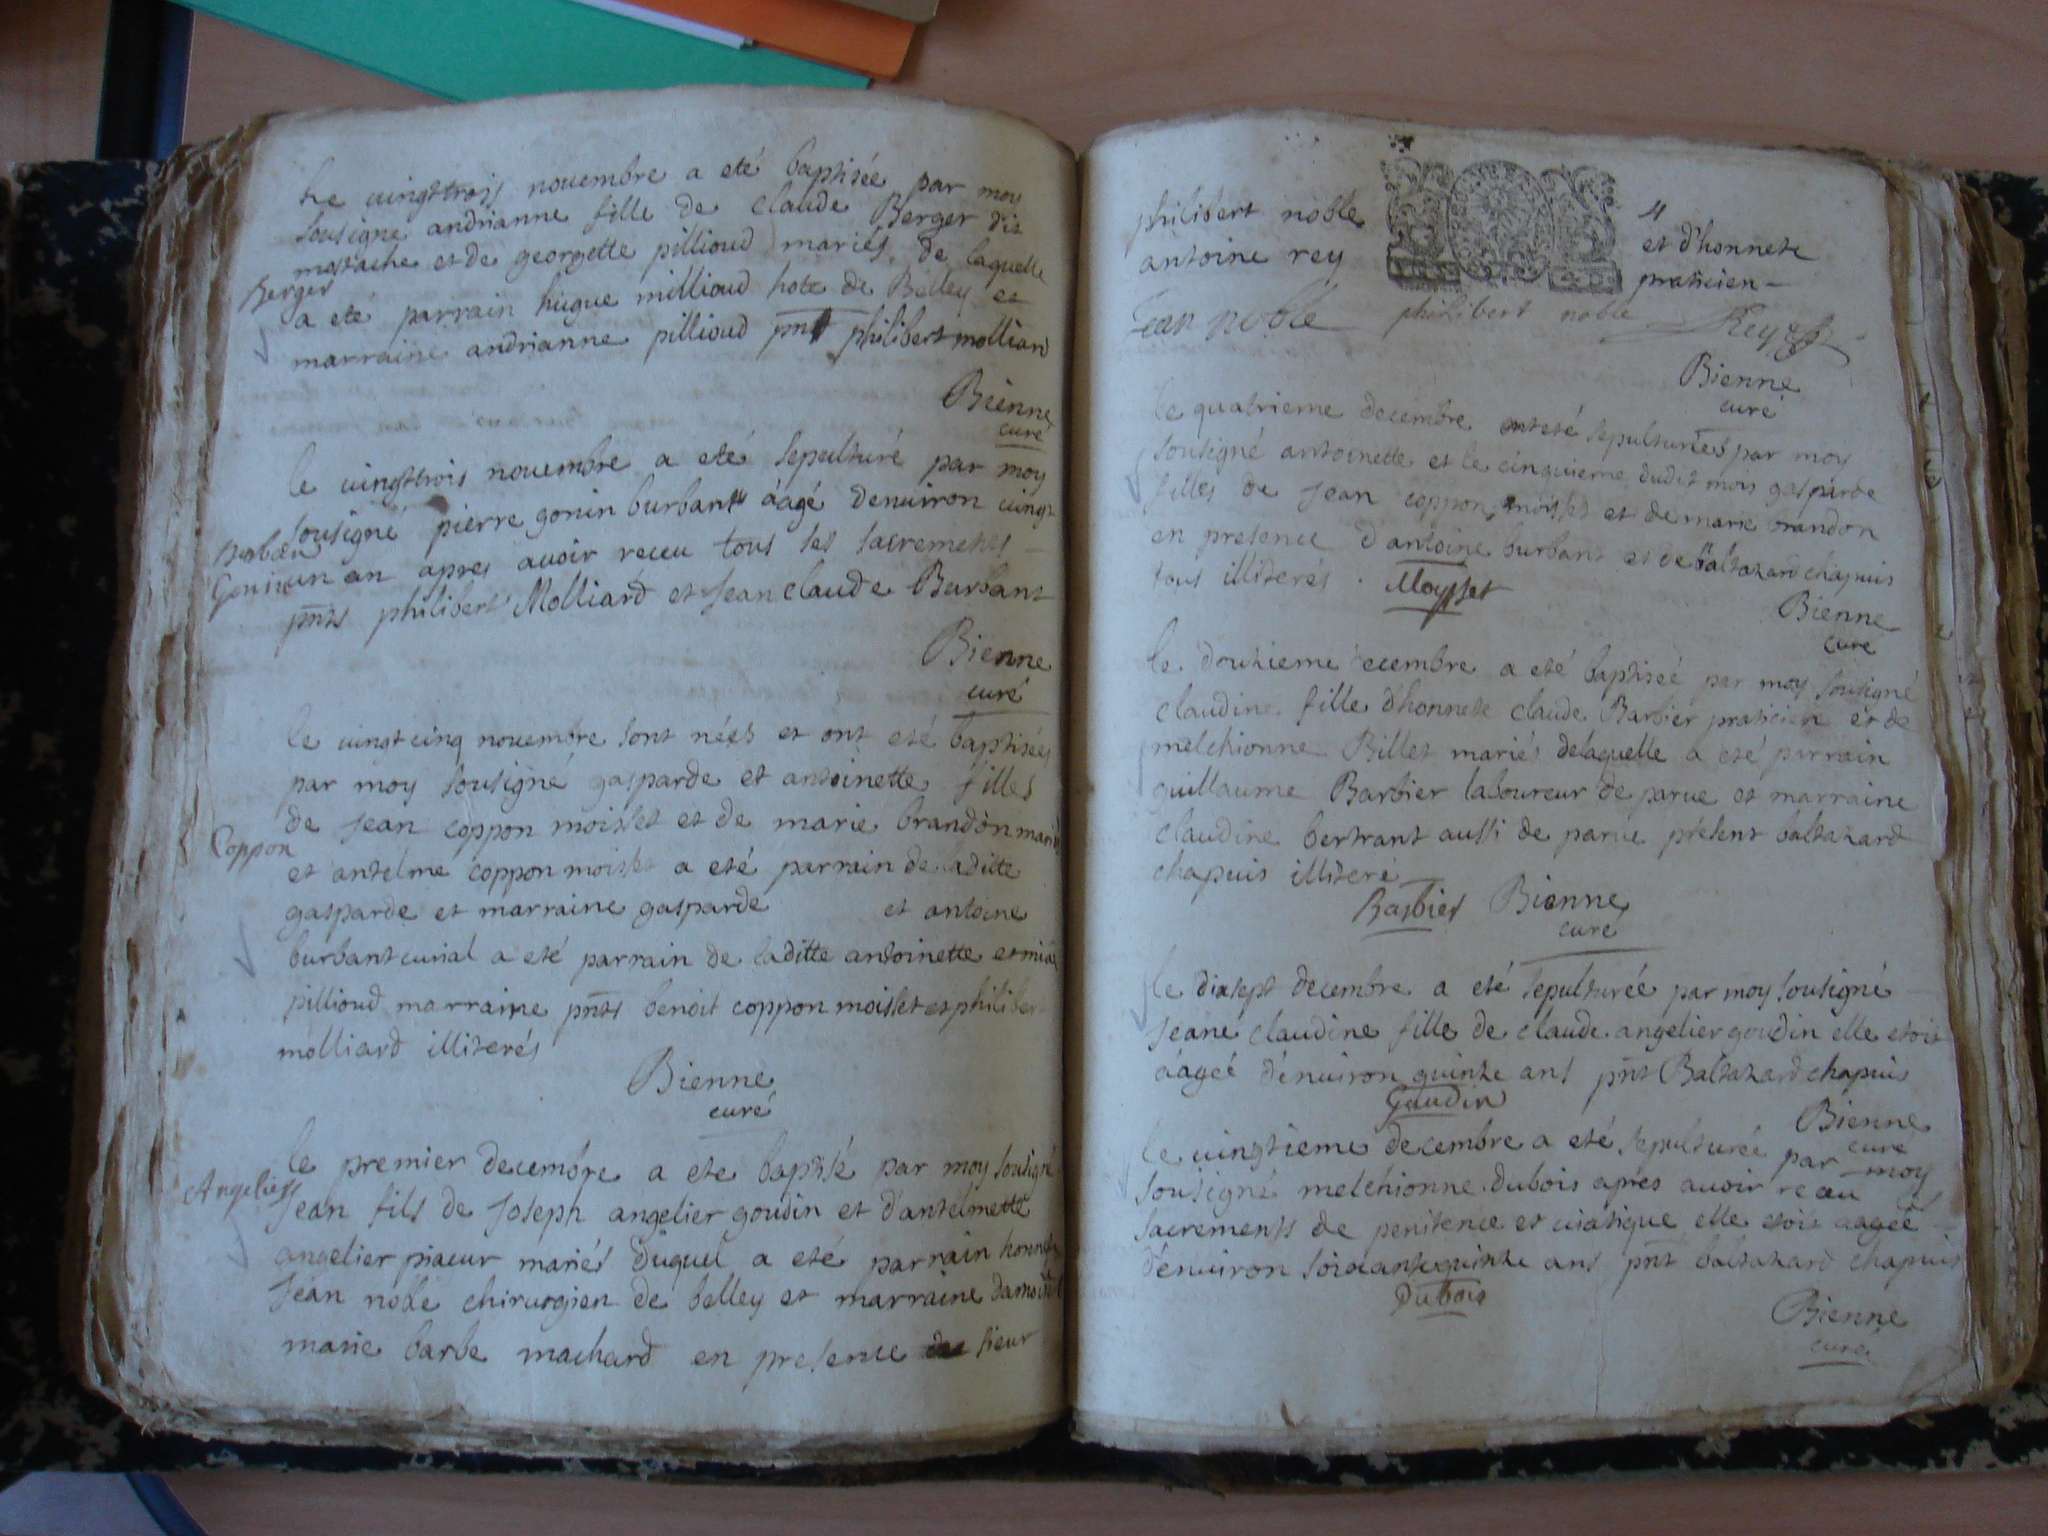 Le vingttrois nouembre a eté baptisée par moy
sousigne andrianne fille de claude Berger dit
mostache et de georgette pillioud mariés de laquelle
Berger
a eté parrain hugue millioud hote de Belley et
marraine andrianne pillioud pnt philibert molliard
Bienne
curé
le vingttrois nouembre a eté sepulturé par moy
sousigné pierre gonin burbant áagé denuiron vingt
Gonin
un an apres auoir receu tous ses sacrements
pnts philibert Molliard et Jean claude Burbant
Bienne
curé
le vingt cinq nouembre sont néés et ont eté baptisées
par moy sousigné gasparde et antoinette filles
de Jean coppon moisset et de marie brandon mariés
Coppon
et antelme coppon moisset a eté parrain de laditte
gasparde et marraine gasparde et antoine
burbant curial a eté parrain de laditte antoinette et
pillioud marraine pnts benoit coppon moisset et philiber
molliard illiterés
Bienne
curé
le premier decembre a ete baptisé par moy sousigné
Angelier
Jean fils de Joseph angelier goudin et d'antelmette
angelier piaeur mariés duquel a eté parrain honnete
Jean noble chirurgien de belley et marraine damoiselle
marie barbe machard en presence de sieur
philibert noble et d'honnete
antoine rey praticien
Jean noble philibert noble Rey
Bienne
curé
le quatrieme decembre ont eté sepulturées par moy
sousigné antoinette et le cinquieme dudit mois gasparde
filles de Jean coppon moisset et de marie brandon
en presence d'antoine burbant et de baltazard chapuis
tous illiterés. Moysset
Bienne
curé
le douzieme decembre a eté baptiseé par moy sousigné
claudine fille d'honnete claude Barbier praticien et de
melchionne Billet mariés delaquelle a eté parrain
guillaume Barbier laboureur de parue et marraine
claudine bertrant aussi de parue présent baltazard
chapuis illiteré
Barbier Bienne
curé
le dixsept decembre a eté sepulturée par moy sousigné
Jeane claudine fille de claude angelier goudin elle etoit
áageé dénuiron quinze ans pnt Baltazard chapuis
Gaudin
Bienne
curé
le vingtieme decembre a eté sepulturée par moy
sousigné melchionne Dubois apres auoir receu
sacrements de penitence et viatique elle etoit aageé
dénuiron soixante quinze ans pnt baltazard chapuis
Dubois
Bienne
curé